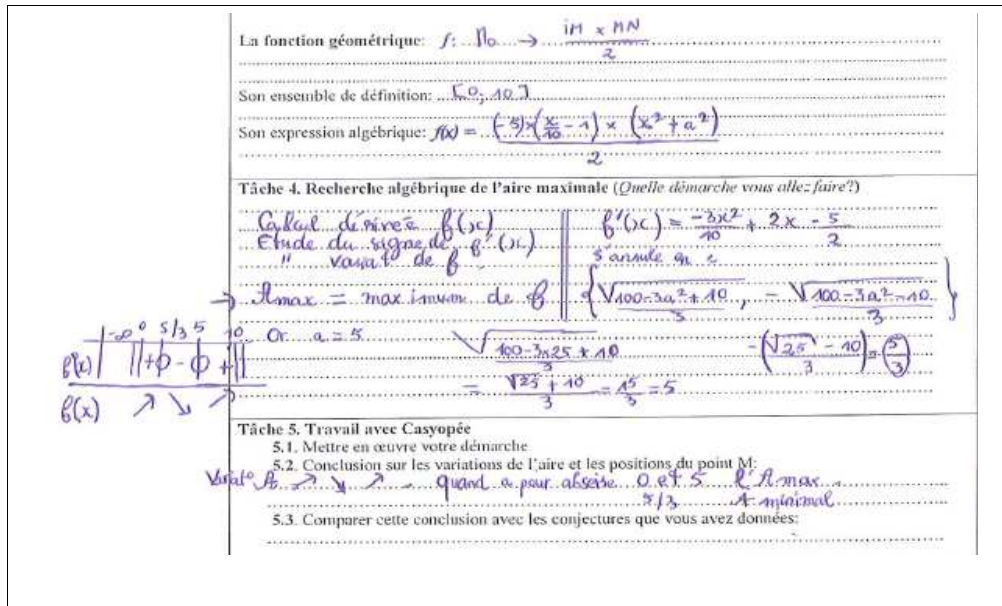 La fonction géométrique: f: Mo → iM × MN / 2
Son ensemble de définition: [0; 10]
Son expression algébrique: f(x) = (-5)×(x/10 - 1) × (x² + a²) / 2
Tâche 4. Recherche algébrique de l'aire maximale (Quelle démarche vous allez faire?)
Calcul dérivée f(x) || f'(x) = -3x²/10 + 2x - 5/2
Etude du signe de f'(x) s'annule en
" variat° de f
→ Amax = maximum de f { √100-3a²+10 / 3, - √100-3a²-10 / 3 }
-∞ 0 5/3 5 10 Or a = 5 √100-3×25+10 / 3 -(√25 - 10 / 3) = (5/3)
f'(x) || + ϕ - ϕ + || = √25 + 10 / 3 = 15/3 = 5
f(x) ↗ ↘ ↗
Tâche 5. Travail avec Casyopée
5.1. Mettre en œuvre votre démarche
5.2. Conclusion sur les variations de l'aire et les positions du point M:
Variat° A ↗ ↘ ↗ quand a pour absisse 0 et 5 l'Amax
5/3 A minimal
5.3. Comparer cette conclusion avec les conjectures que vous avez données: